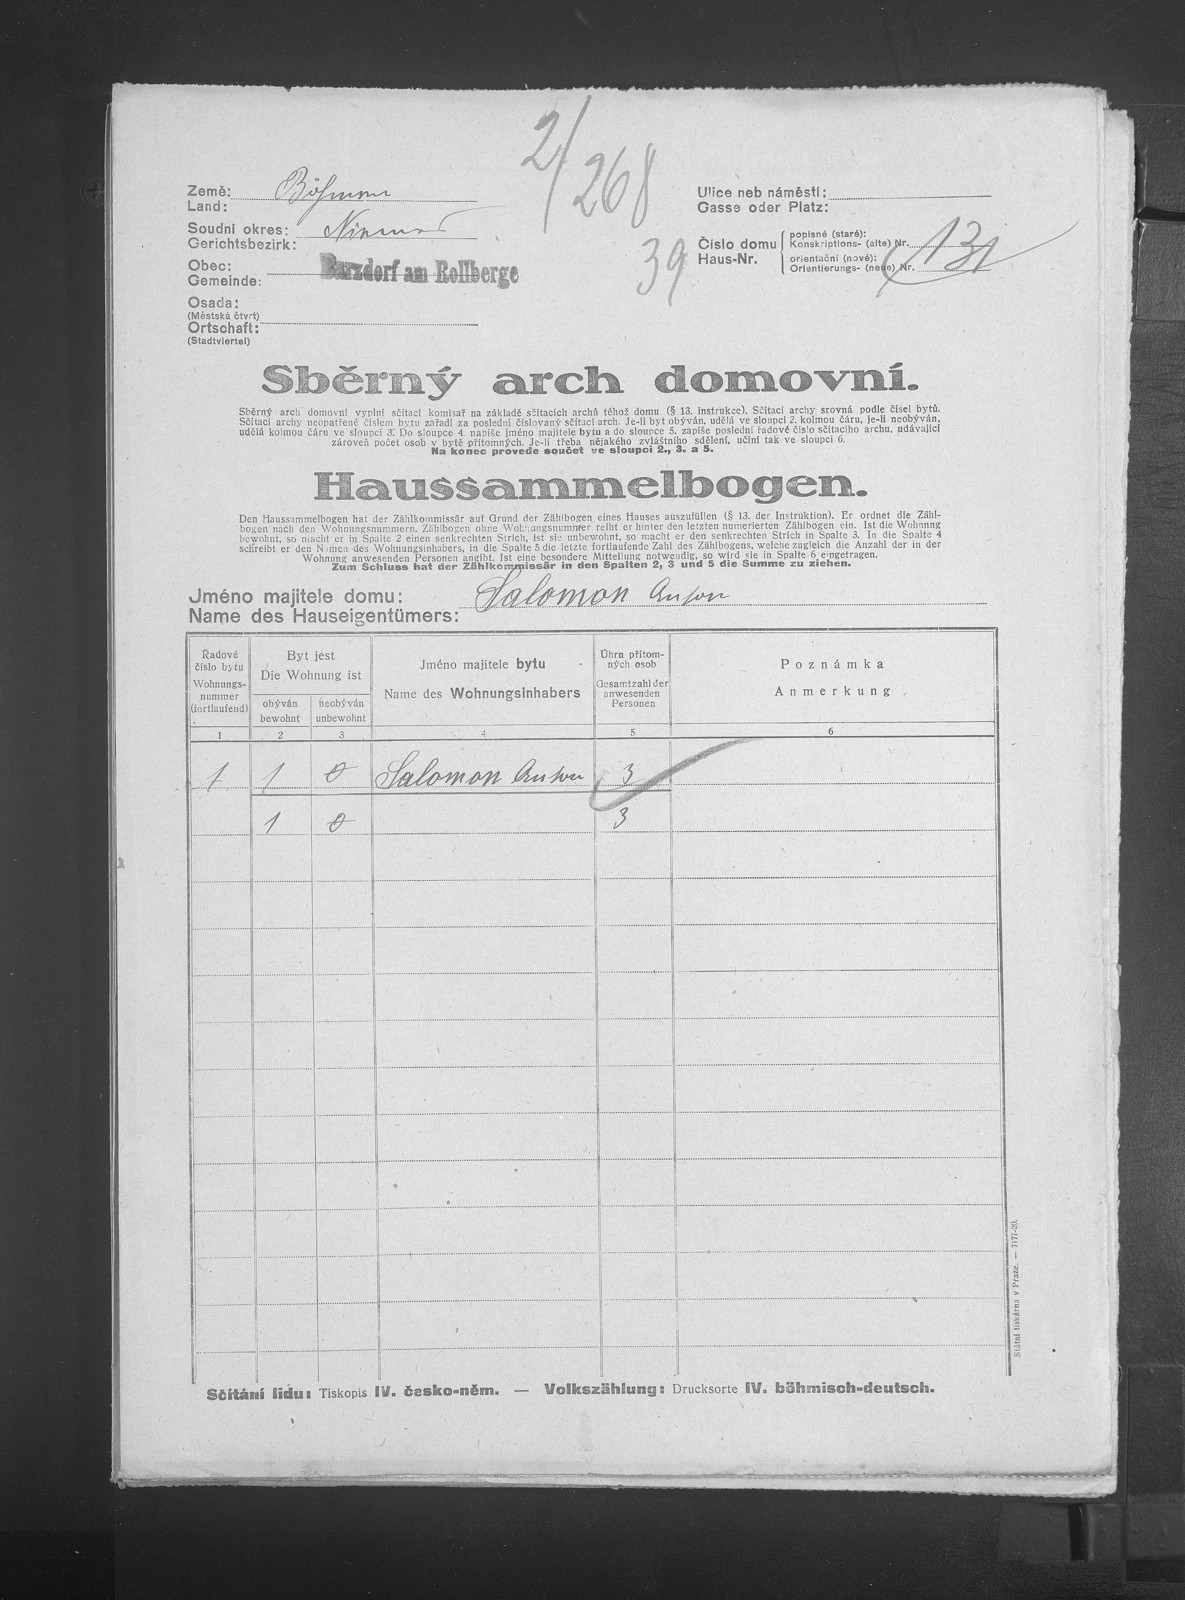 2/268
39
Země: Böhmen
Land:
Soudní okres: Niemes
Gerichtsbezirk:
Obec: Barzdorf am Rollberge
Gemeinde:
Osada:
(Městská čtvrt)
Ortschaft:
(Stadtviertel)
Ulice neb náměstí:
Gasse oder Platz:
Číslo domu
Haus-Nr.
popisné (staré):
Konskriptions- (alte) Nr. 131
orientační (nové):
Orientierungs- (neue) Nr.
Sběrný arch domovní.
Sběrný arch domovní vyplní sčítací komisař na základě sčítacích archů téhož domu (§ 13. instrukce). Sčítací archy srovná podle čísel bytů.
Sčítací archy neopatřené číslem bytu zařadí za poslední číslovaný sčítací arch. Je-li byt obýván, udělá ve sloupci 2. kolmou čáru, je-li neobýván,
udělá kolmou čáru ve sloupci 3. Do sloupce 4. napíše jméno majitele bytu a do sloupce 5. zapíše poslední řadové číslo sčítacího archu, udávající
zároveň počet osob v bytě přítomných. Je-li třeba nějakého zvláštního sdělení, učiní tak ve sloupci 6.
Na konec provede součet ve sloupci 2., 3. a 5.
Haussammelbogen.
Den Haussammelbogen hat der Zählkommissär auf Grund der Zählbogen eines Hauses auszufüllen (§ 13. der Instruktion). Er ordnet die Zähl-
bogen nach den Wohnungsnummern. Zählbogen ohne Wohnungsnummer reiht er hinter den letzten numerierten Zählbogen ein. Ist die Wohnnng
bewohnt, so macht er in Spalte 2 einen senkrechten Strich, ist sie unbewohnt, so macht er den senkrechten Strich in Spalte 3. In die Spalte 4
schreibt er den Namen des Wohnungsinhabers, in die Spalte 5 die letzte fortlaufende Zahl des Zählbogens, welche zugleich die Anzahl der in der
Wohnung anwesenden Personen angibt. Ist eine besondere Mitteilung notwendig, so wird sie in Spalte 6 eingetragen.
Zum Schluss hat der Zählkommissär in den Spalten 2, 3 und 5 die Summe zu ziehen.
Jméno majitele domu: Salomon Anton
Name des Hauseigentümers:
Řadové
číslo bytu
Wohnungs-
nummer
(fortlaufend)
Byt jest
Die Wohnung ist
obýván
bewohnt
neobýván
unbewohnt
Jméno majitele bytu
Name des Wohnungsinhabers
Úhrn přítom-
ných osob
Gesamtzahl der
anwesenden
Personen
Poznámka
Anmerkung
1 2 3 4 5 6
1 1 0 Salomon Anton 3
1 0 3
Sčítání lidu: Tiskopis IV. česko-něm. — Volkszählung: Drucksorte IV. böhmisch-deutsch.
Státní tiskárna v Praze. — 7177-20.